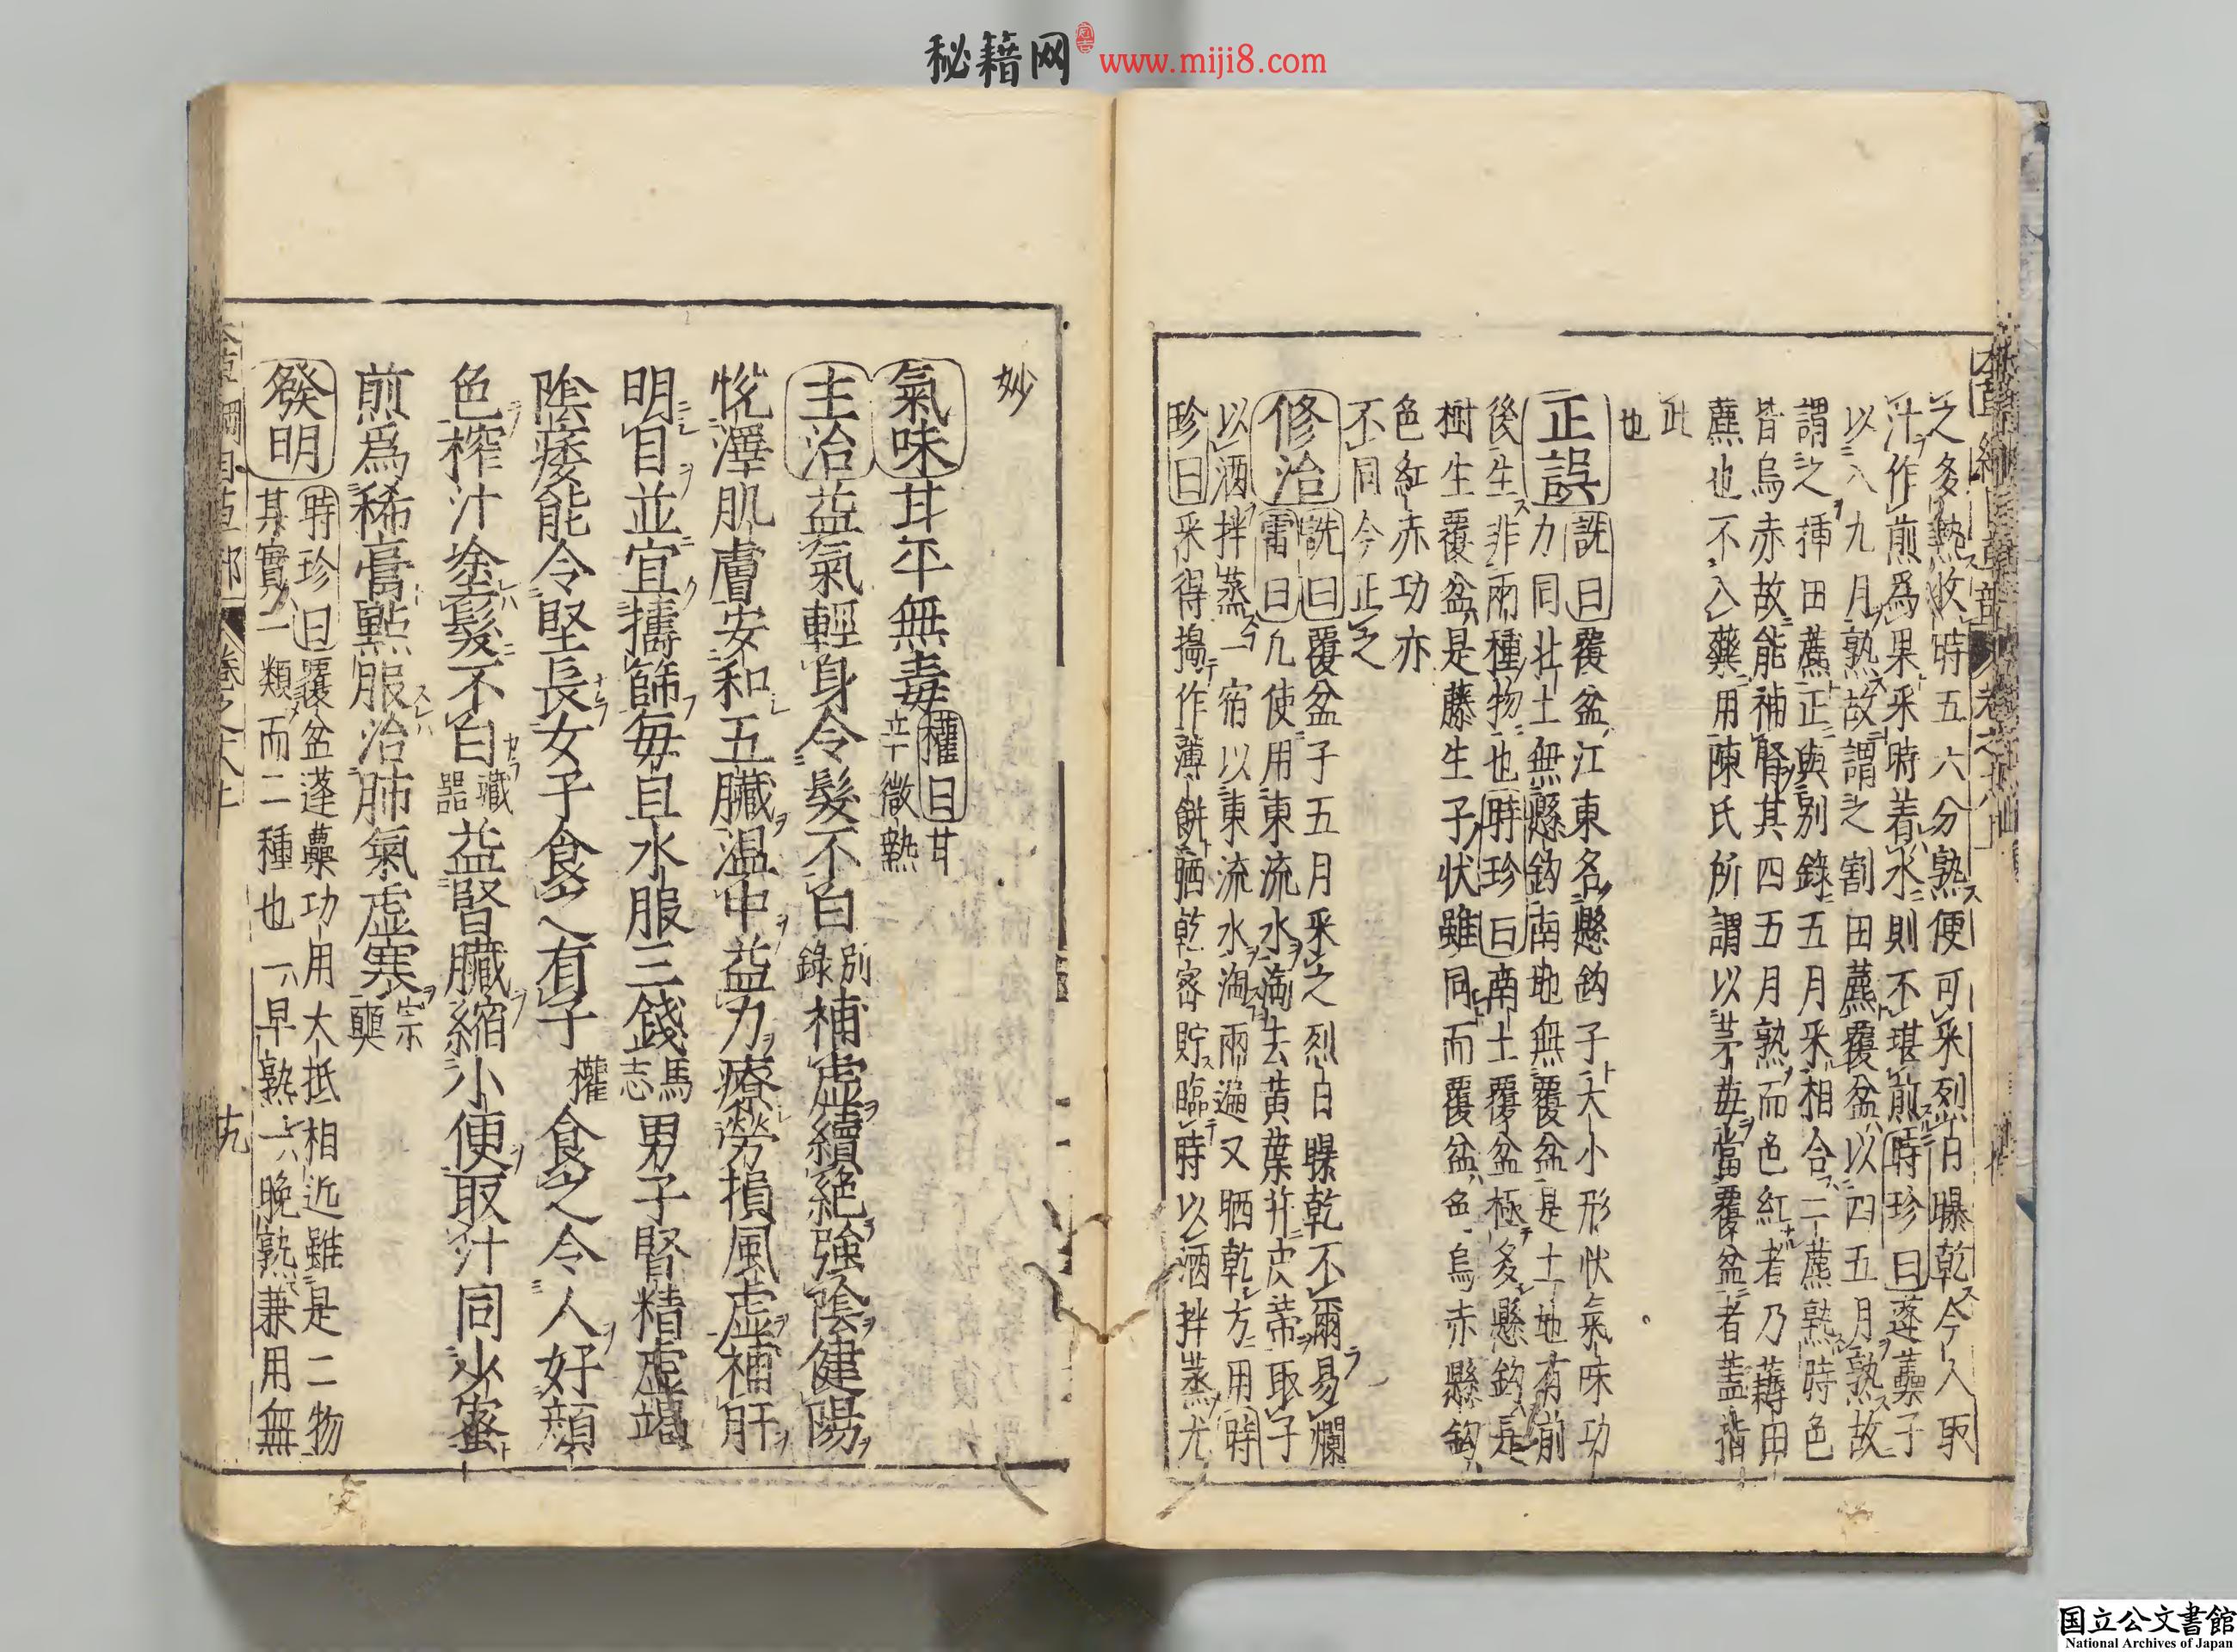 秘籍网 www.miji8.com
之多熱收時五六分熟便可采烈日曝乾今人取
汁作煎爲果采時着水則不堪煎時珍曰蓬虆子
以八九月熟故謂之割田藨覆盆以四五月熟故
謂之挿田藨正與別錄五月采相合二藨熟時色
皆烏赤故能補腎其四五月熟而色紅者乃薅田
藨也不入藥用陳氏所謂以茅毎當覆盆者蓋指
此
也
正誤 詵曰覆盆江東名懸鈎子大小形状氣味功
力同北土無懸鈎南地無覆盆是土地有前
後生非兩種物也時珍曰南土覆盆極多懸鈎是
樹生覆盆是藤生子状雖同而覆盆色烏赤懸鈎
色紅赤功亦
不同今正之
修治 詵曰覆盆子五月采之烈日曝乾不爾易爛
雷曰凡使用東流水淘去黄葉并皮蒂取子
以酒拌蒸一宿以東流水淘兩遍又晒乾方用時
珍曰采得搗作薄餅晒乾密貯臨時以酒拌蒸尤
妙
氣味甘平無毒 權曰甘
立微熱
主治益氣輕身令髮不白 別錄 補虛續絶強陰健陽
悅澤肌膚安和五臟温中益力療勞損風虛補肝
明目並宜擣篩毎旦水服三錢 馬志 男子腎精虛竭
陰痿能令堅長女子食之有子 權 食之令人好顔
色榨汁塗髮不白 藏器 益腎臟縮小便取汁同少蜜
煎爲稀膏點服治肺氣虛寒 宗奭
發明 時珍曰覆盆蓬虆功用大抵相近雖是二物
其實一類而二種也一早熟一晚熟兼用無
本草綱目草部 卷之十八上 廿九
国立公文書館
National Archives of Japan